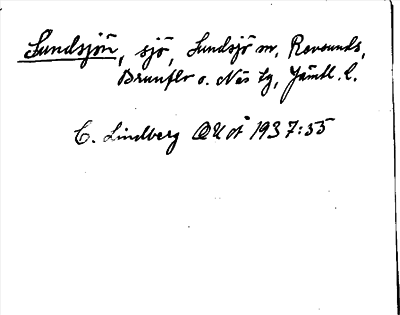 Sundsjön, sjö, Sundsjö sn, Revsunds,
Brunflo o. Näs tg, Jämtl. l.
C. Lindberg OUÅ 1937:55